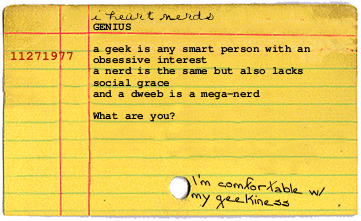 i heart nerds
GENIUS
11271977
a geek is any smart person with an
obsessive interest
a nerd is the same but also lacks
social grace
and a dweeb is a mega-nerd
What are you?
I'm comfortable w/
my geekiness